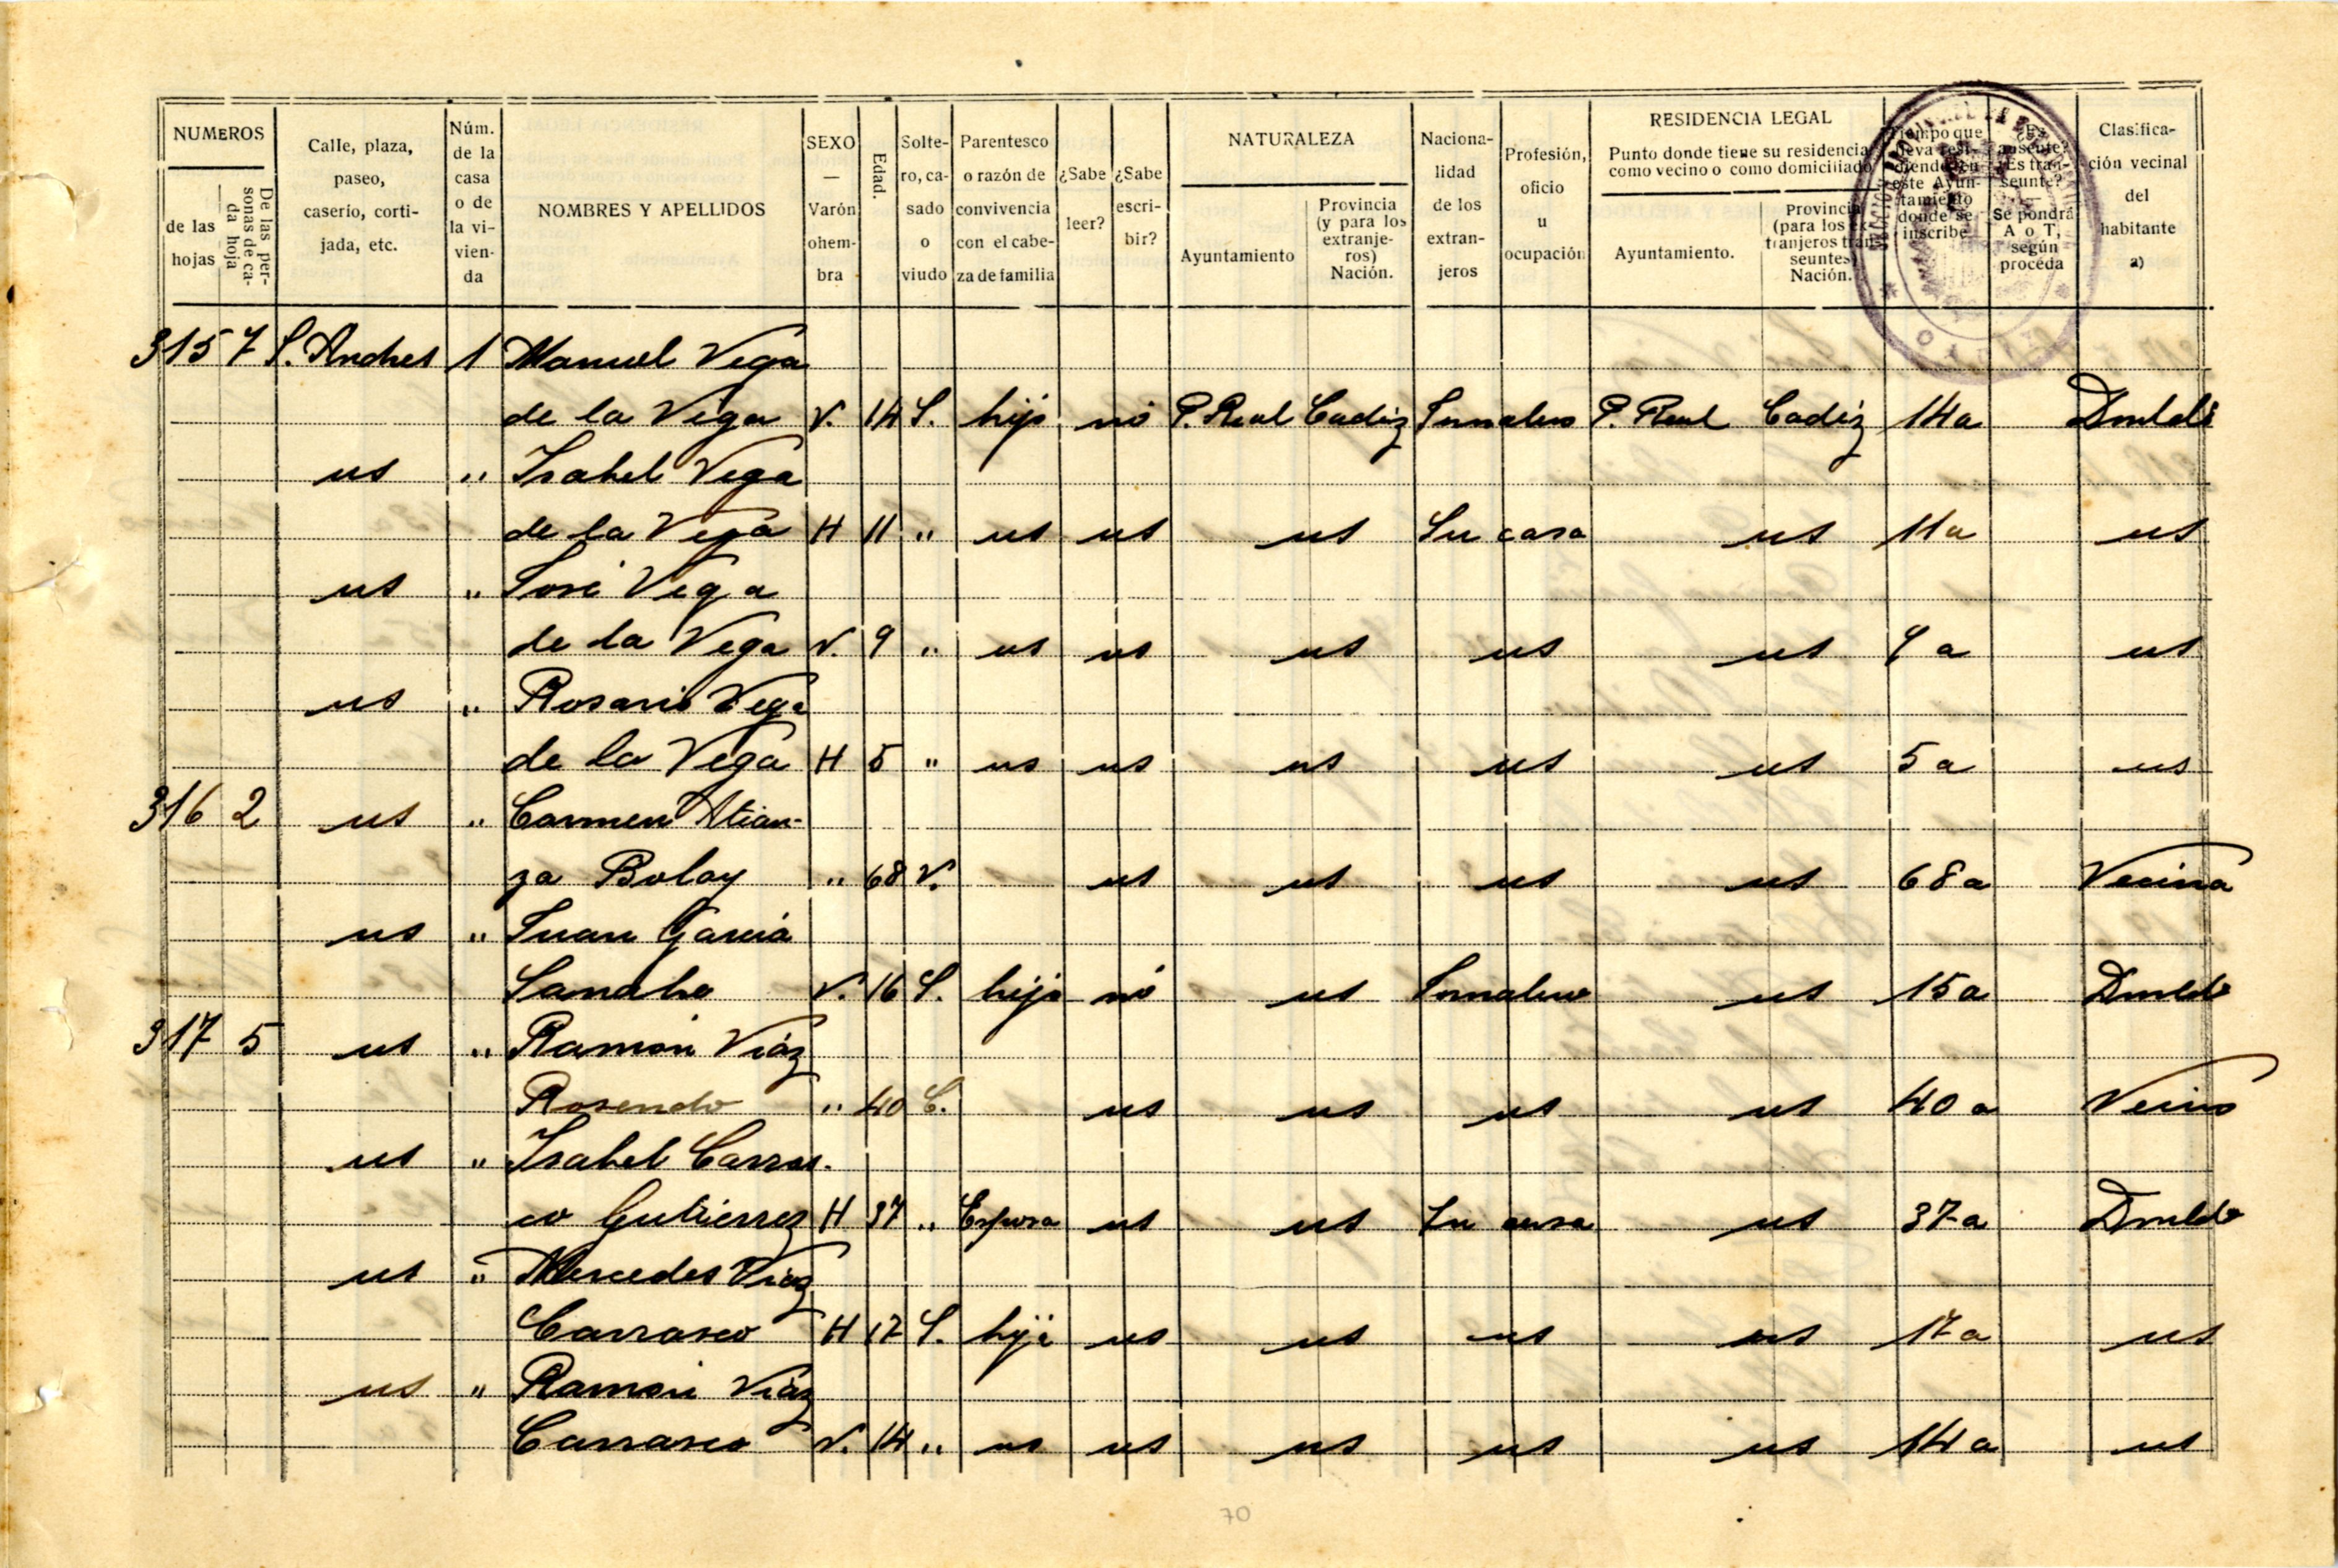 NUMEROS
de las hojas
De las personas de cada hoja
Calle, plaza, paseo, caserío, cortijada, etc.
Núm. de la casa o de la vivienda
NOMBRES Y APELLIDOS
SEXO — Varón o hembra
Edad.
Soltero, casado o viudo
Parentesco o razón de convivencia con el cabeza de familia
¿Sabe leer?
¿Sabe escribir?
NATURALEZA
Ayuntamiento
Provincia (y para los extranjeros) Nación.
Nacionalidad de los extranjeros
Profesión, oficio u ocupación
RESIDENCIA LEGAL
Punto donde tiene su residencia como vecino o como domiciliado
Ayuntamiento.
Provincia (para los extranjeros transeuntes) Nación.
Tiempo que lleva residiendo en este Ayuntamiento donde se inscribe
¿Es ausente? ¿Es transeunte? — Se pondrá A o T, según proceda
Clasificación vecinal del habitante a)
315 7 S. Andres 1 Manuel Vega
de la Vega V. 14 S. hijo no P. Real Cadiz Jornalero P. Real Cadiz 14 a Domldo
us " Isabel Vega
de la Vega H 11 " us us us Su casa us 11 a us
us " José Vega
de la Vega V. 9 " us us us us us 9 a us
us " Rosario Vega
de la Vega H 5 " us us us us us 5 a us
316 2 us " Carmen Atian-
za Bolay " 68 V. us us us us 68 a Vecina
us " Juan García
Sancho V. 16 S. hijo no us Jornalero us 15 a Domldo
317 5 us " Ramón Viáz
Rosendo " 40 C. us us us us 40 a Vecino
us " Isabel Carras-
co Gutierrez H 37 " Esposa us us Su casa us 37 a Domldo
us " Mercedes Viáz
Carrasco H 17 S. hija us us us us 17 a us
us " Ramón Viáz
Carrasco V. 14 " us us us us us 14 a us
70